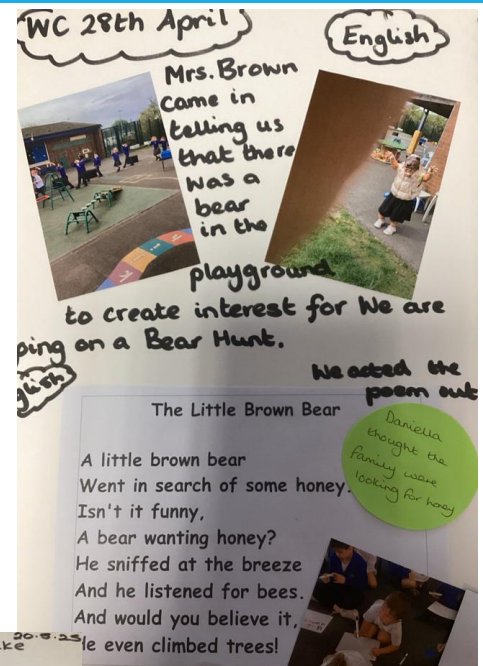 WC 28th April
English
Mrs. Brown
came in
telling us
that there
was a
bear
in the
playground
to create interest for We are
oing on a Bear Hunt.
glish
We acted the
poem out
The Little Brown Bear
A little brown bear
Went in search of some honey.
Isn't it funny,
A bear wanting honey?
He sniffed at the breeze
And he listened for bees.
And would you believe it,
He even climbed trees!
Daniella
thought the
family were
looking for honey
20.5.25
ke